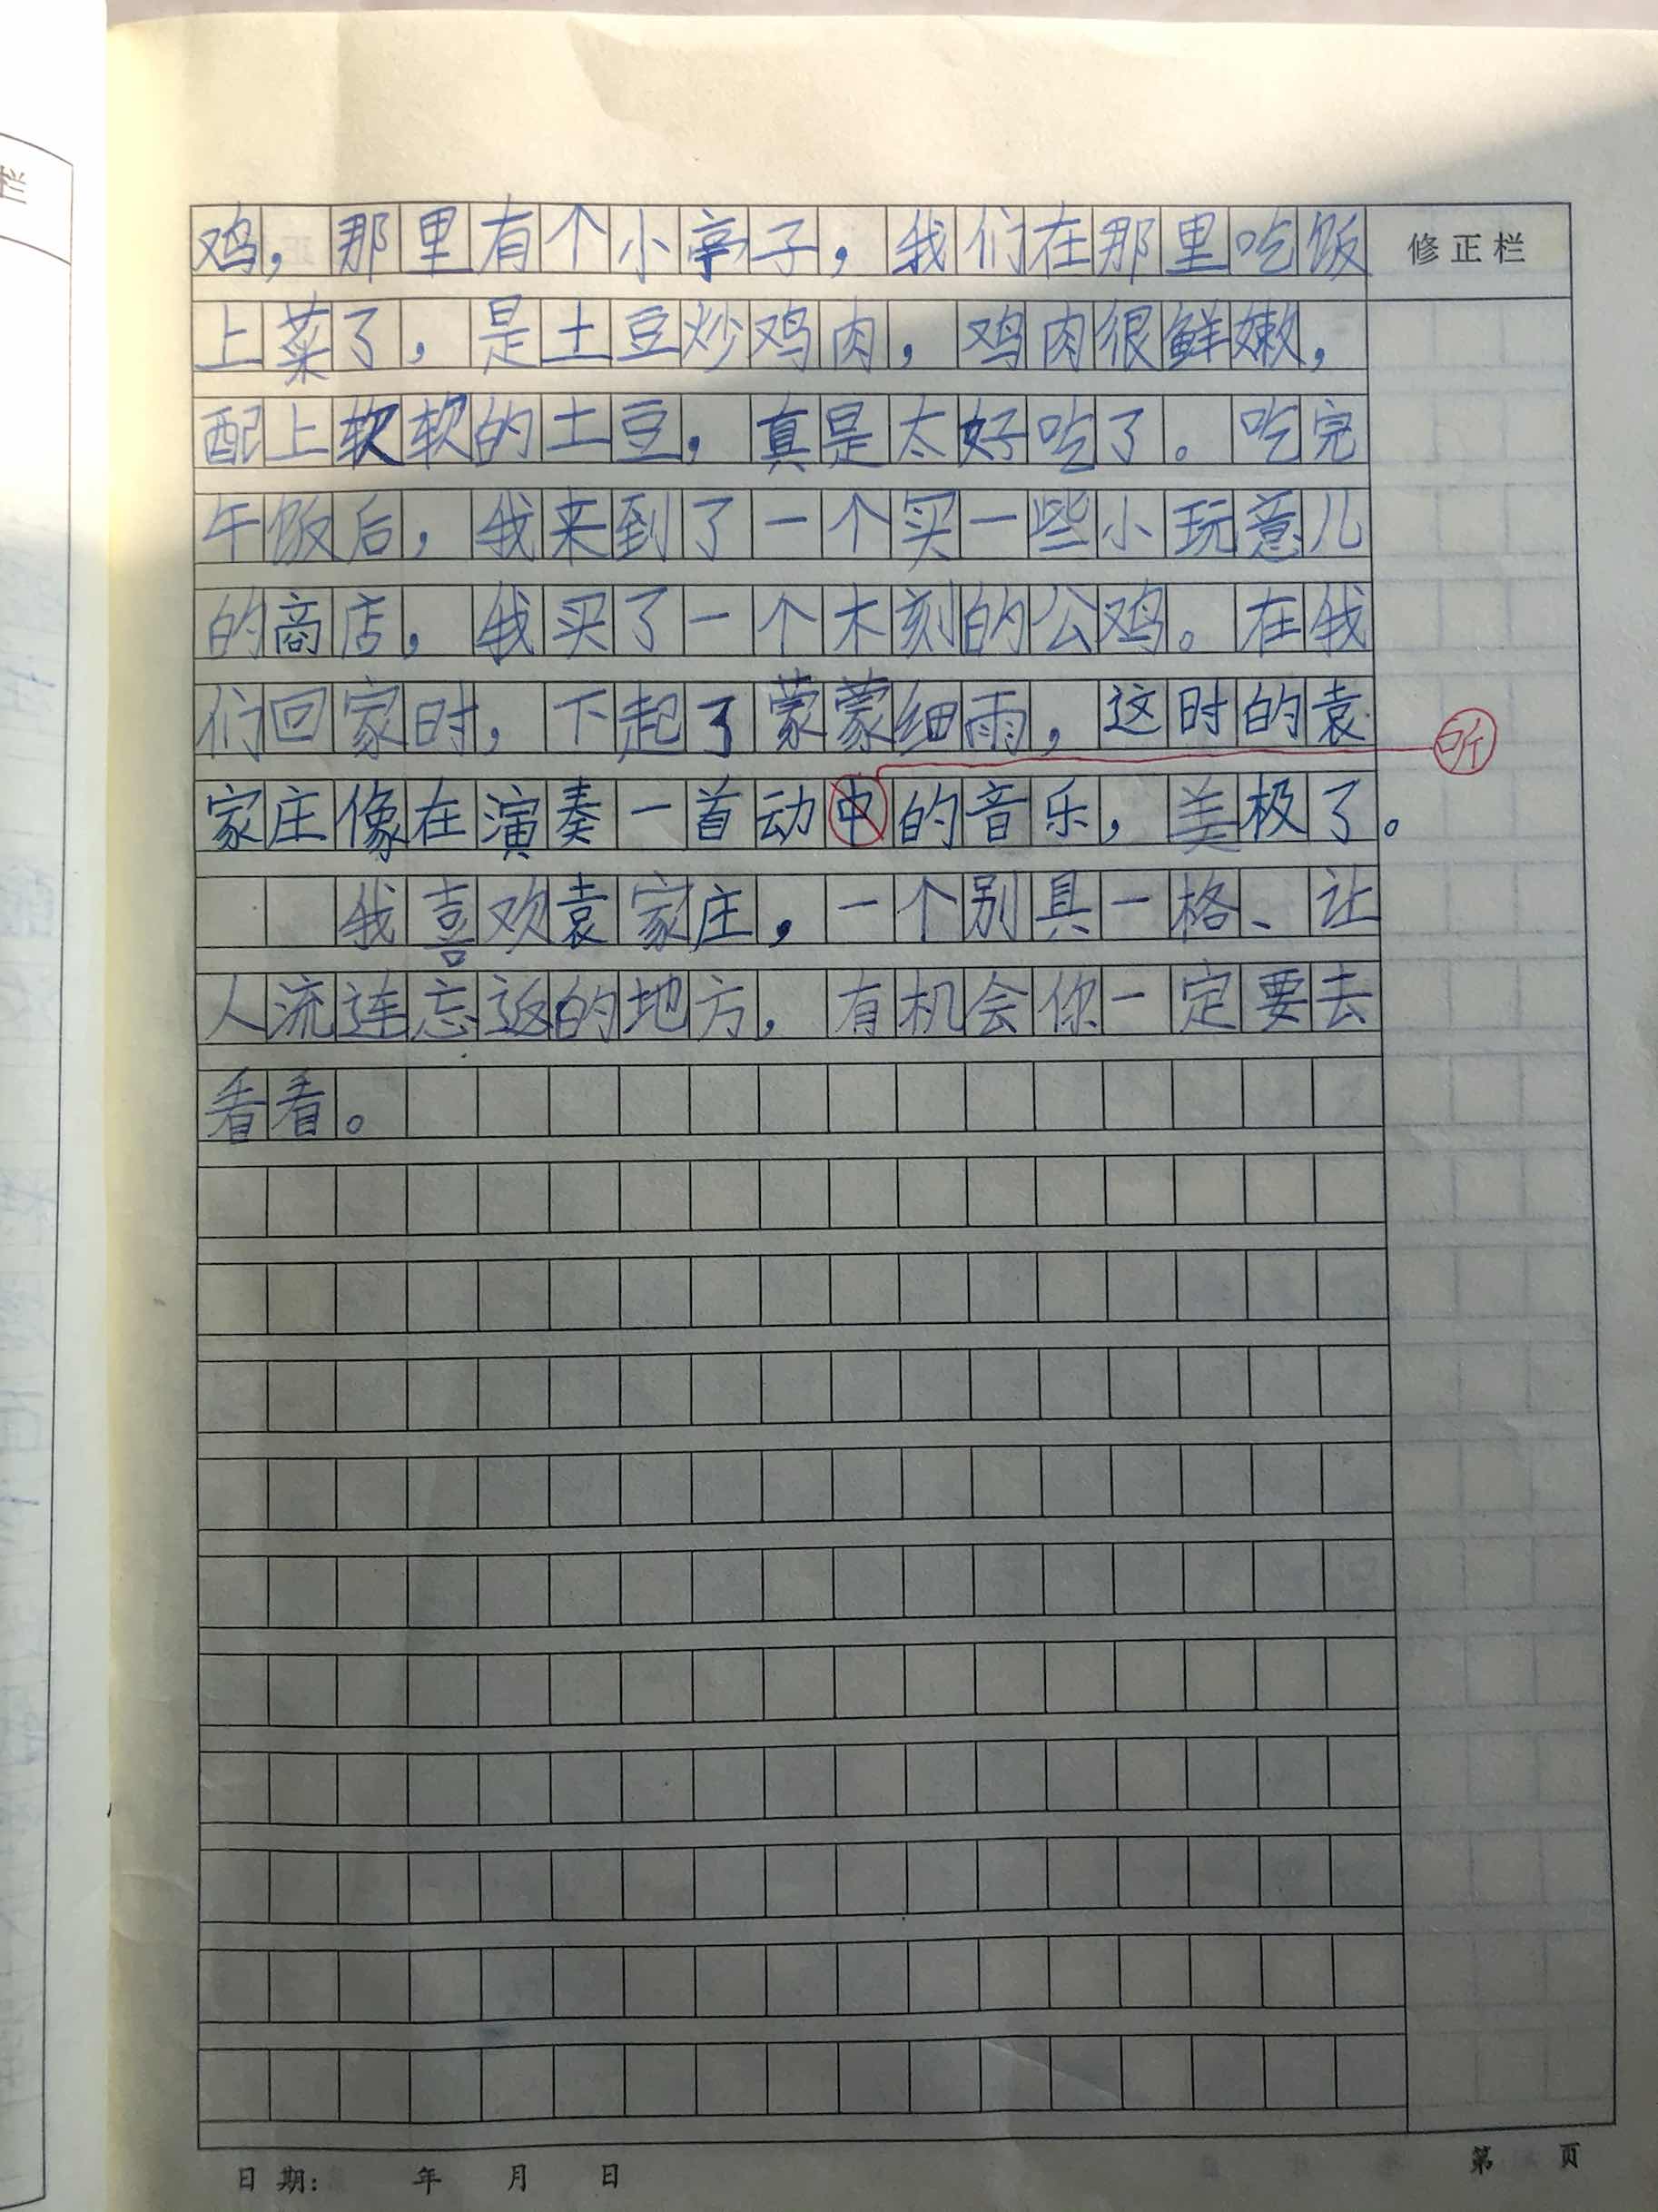 栏
鸡，那里有个小亭子，我们在那里吃饭
修正栏
上菜了，是土豆炒鸡肉，鸡肉很鲜嫩，
配上软软的土豆，真是太好吃了。吃完
午饭后，我来到了一个买一些小玩意儿
的商店，我买了一个木刻的公鸡。在我
们回家时，下起了蒙蒙细雨，这时的袁
听
家庄像在演奏一首动中的音乐，美极了。
我喜欢袁家庄，一个别具一格、让
人流连忘返的地方，有机会你一定要去
看看。
日期： 年 月 日
第 页